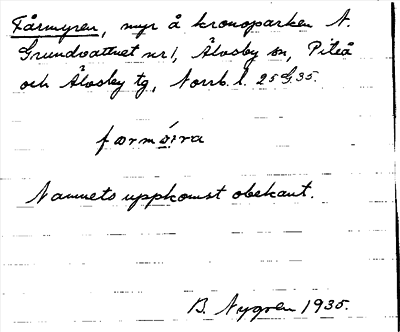 Fårmyren, myr å kronoparken N.
Grundvattnet nr 1, Älvsby sn, Piteå
och Älvsby tg, Norrb. l. 25 G 35.
Namnets uppkomst obekant.
B. Nygren 1935.